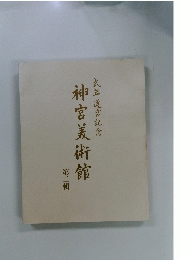 式年遷宮記念
神宮美術館
第二輯